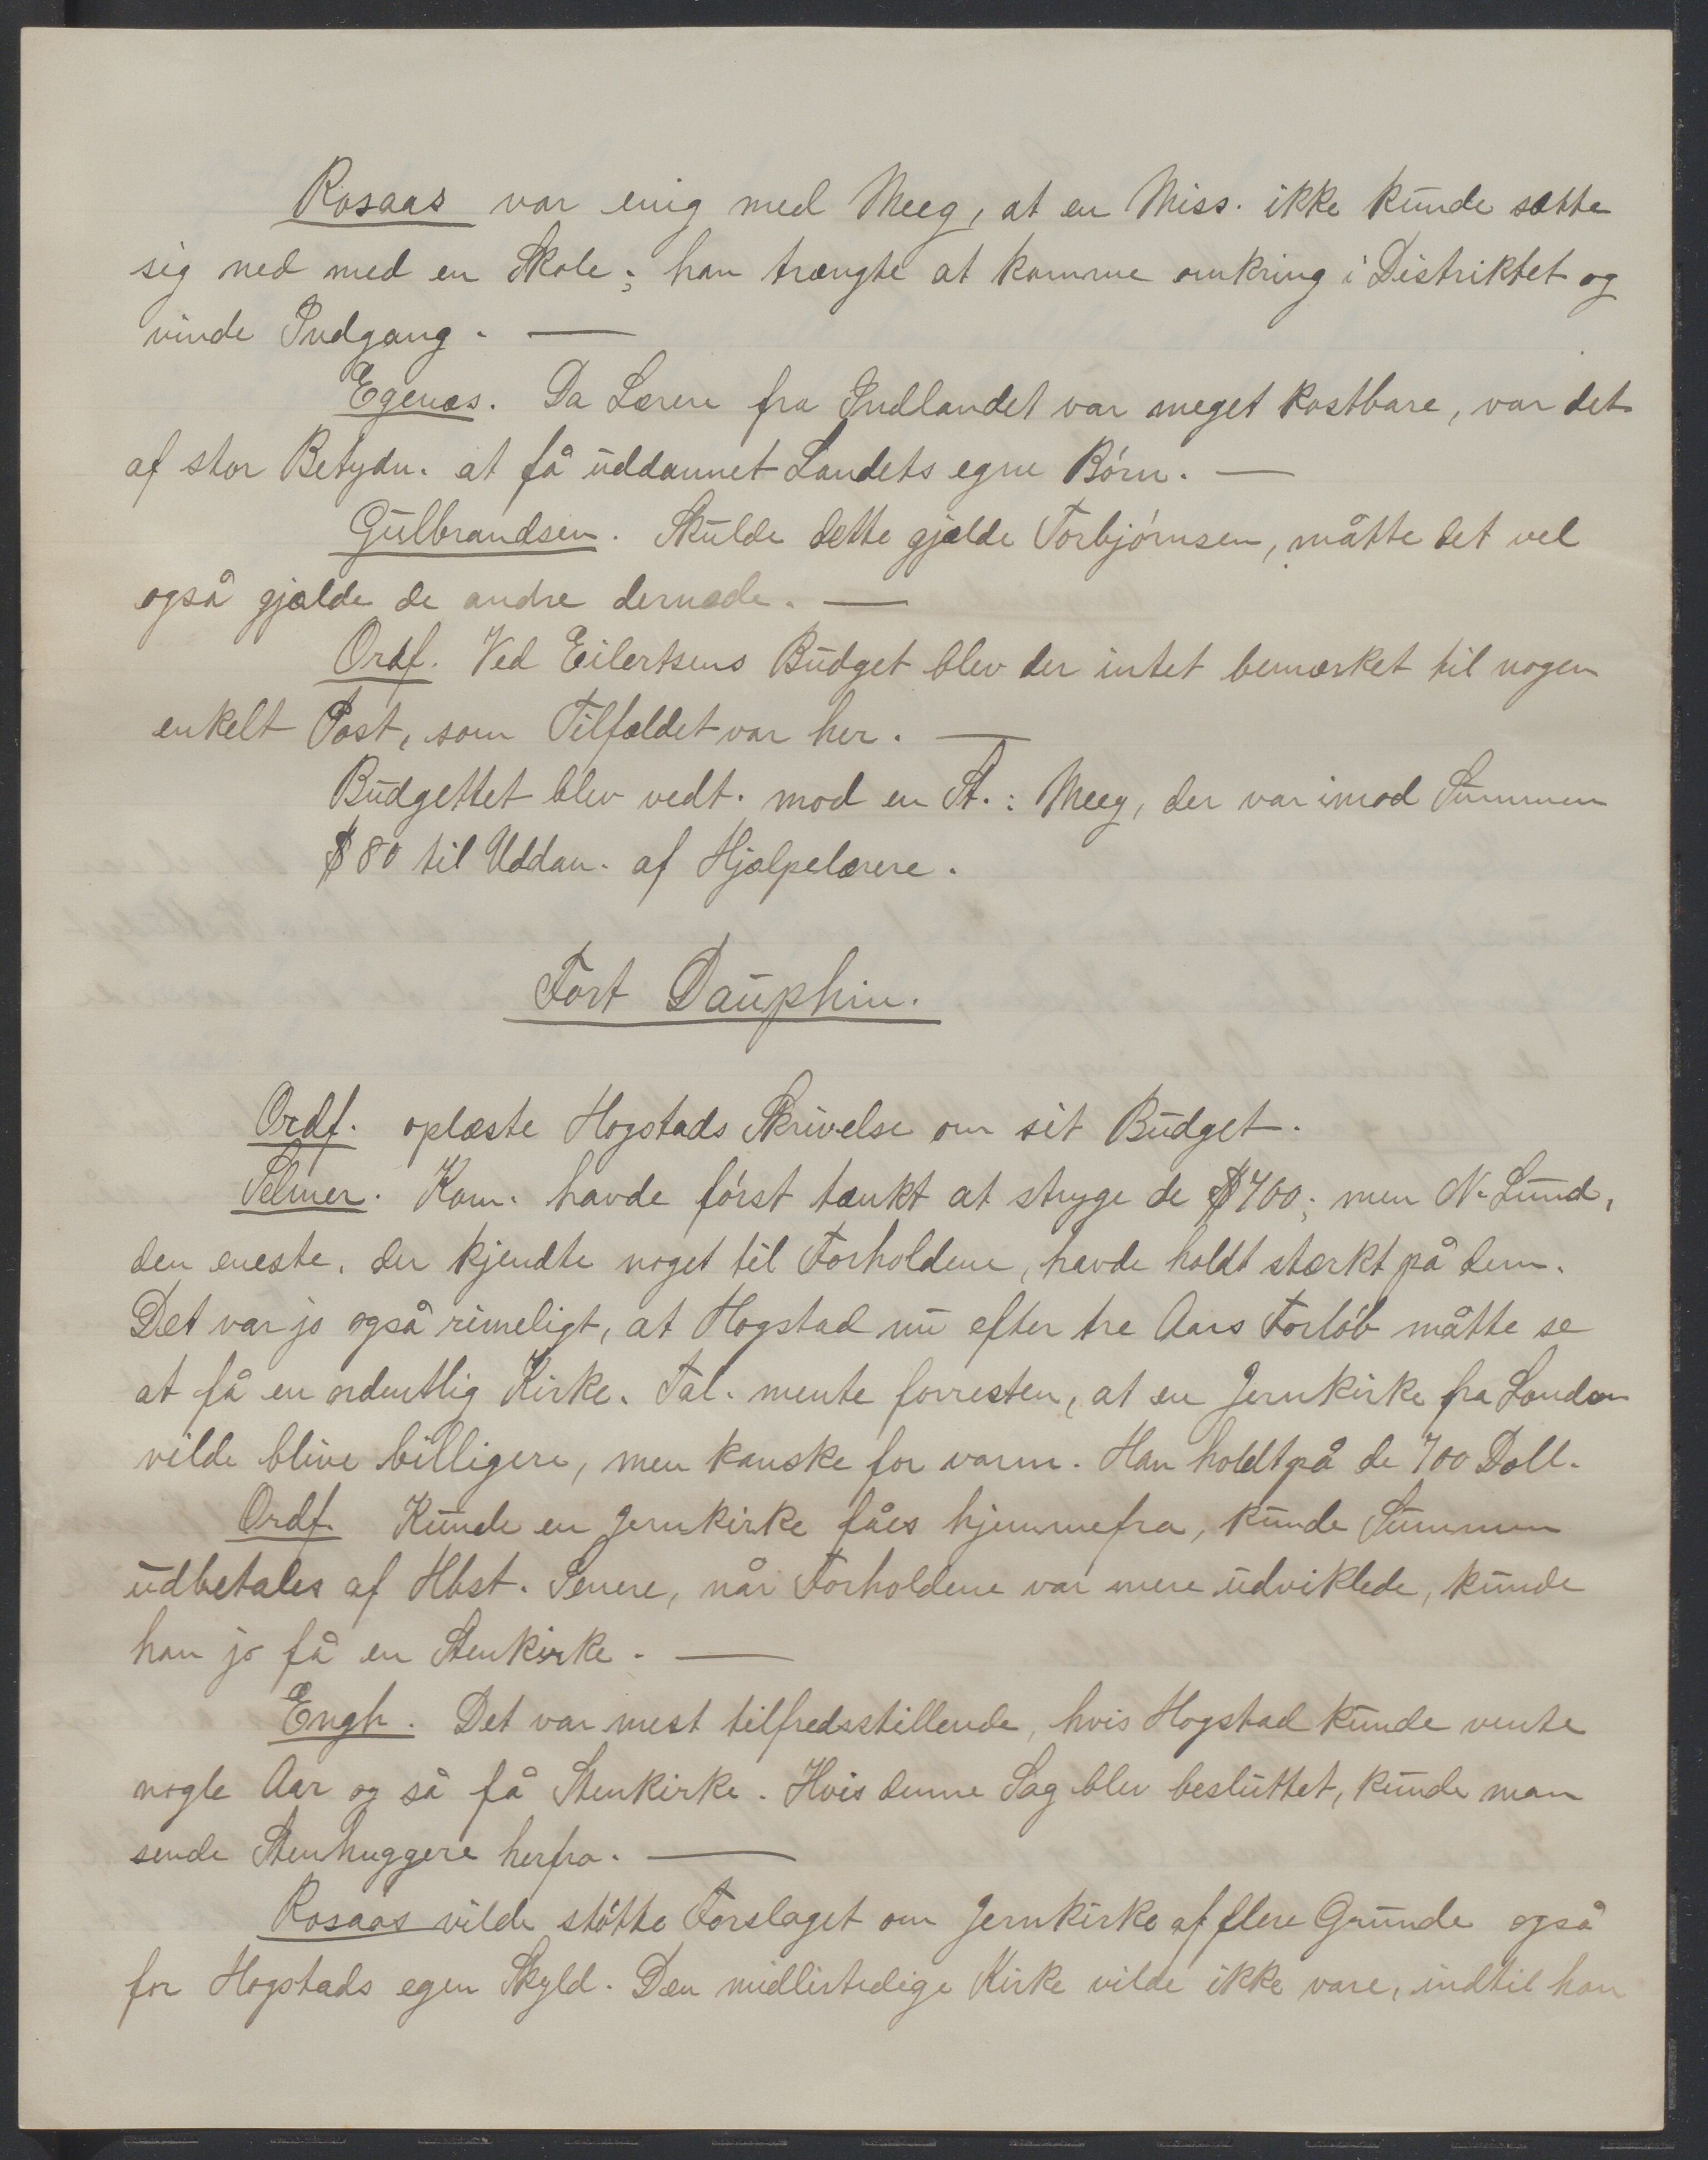 Rosaas var enig med Meeg, at en Miss. ikke kunde sætte
sig ned med en Skole; han trængte at komme omkring i Distriktet og
vinde Indgang. —
Egenæs. Da Lærere fra Indlandet var meget kostbare, var det
af stor Betydn. at få uddannet Landets egne Børn. —
Gulbrandsen. Skulde dette gjælde Torbjørnsen, måtte det vel
også gjælde de andre dernede. —
Ordf. Ved Eilertsens Budget blev der intet bemærket til nogen
enkelt Post, som Tilfældet var her. —
Budgettet blev vedt. mod en St.: Meeg, der var imod Summen
$80 til Uddan. af Hjælpelærere.
Fort Dauphin.
Ordf. oplæste Hogstads Skrivelse om sit Budget.
Selmer. Kom. havde først tænkt at stryge de $700; men N. Lund,
den eneste, der kjendte noget til Forholdene, havde holdt stærkt på dem.
Det var jo også rimeligt, at Hogstad nu efter tre Aars Forløb måtte se
at få en ordentlig Kirke. Tal. mente forresten, at en Jernkirke fra London
vilde blive billigere, men kanske for varm. Han holdt på de 700 Doll.
Ordf. Kunde en Jernkirke fåes hjemmefra, kunde Summen
udbetales af Hbst. Senere, når Forholdene var mere udviklede, kunde
han jo få en Stenkirke. —
Engh. Det var mest tilfredsstillende, hvis Hogstad kunde vente
nogle Aar og så få Stenkirke. Hvis denne Sag blev besluttet, kunde man
sende Stenhuggere herfra. —
Rosaas vilde støtte Forslaget om Jernkirke af flere Grunde også
for Hogstads egen Skyld. Den midlertidige Kirke vilde ikke vare, indtil han